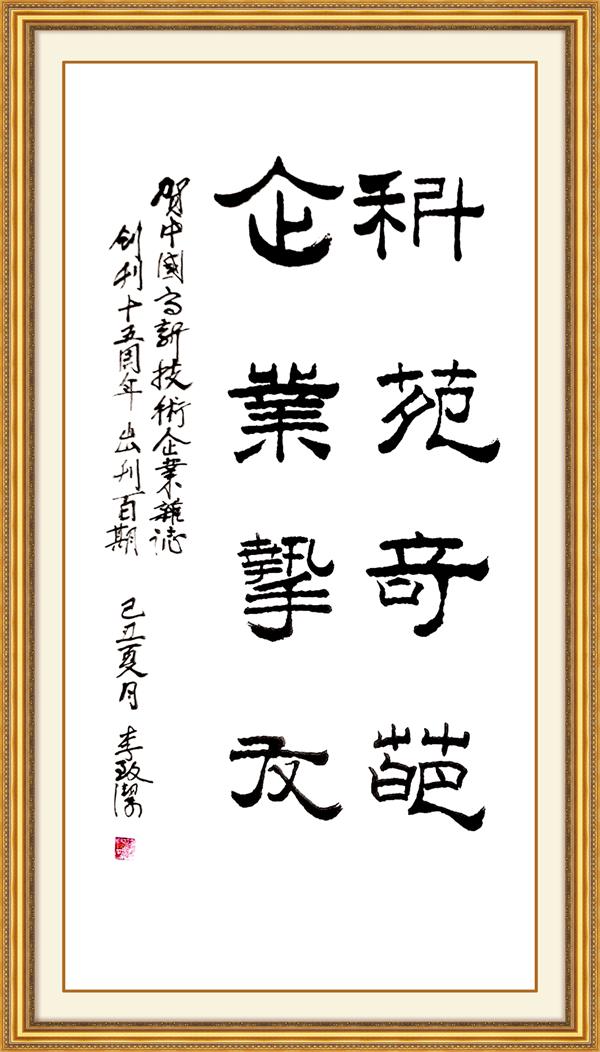 科苑奇葩
企業摯友
賀中國高新技術企業雜誌
创刊十五周年出刊百期
己丑夏月 李致潔